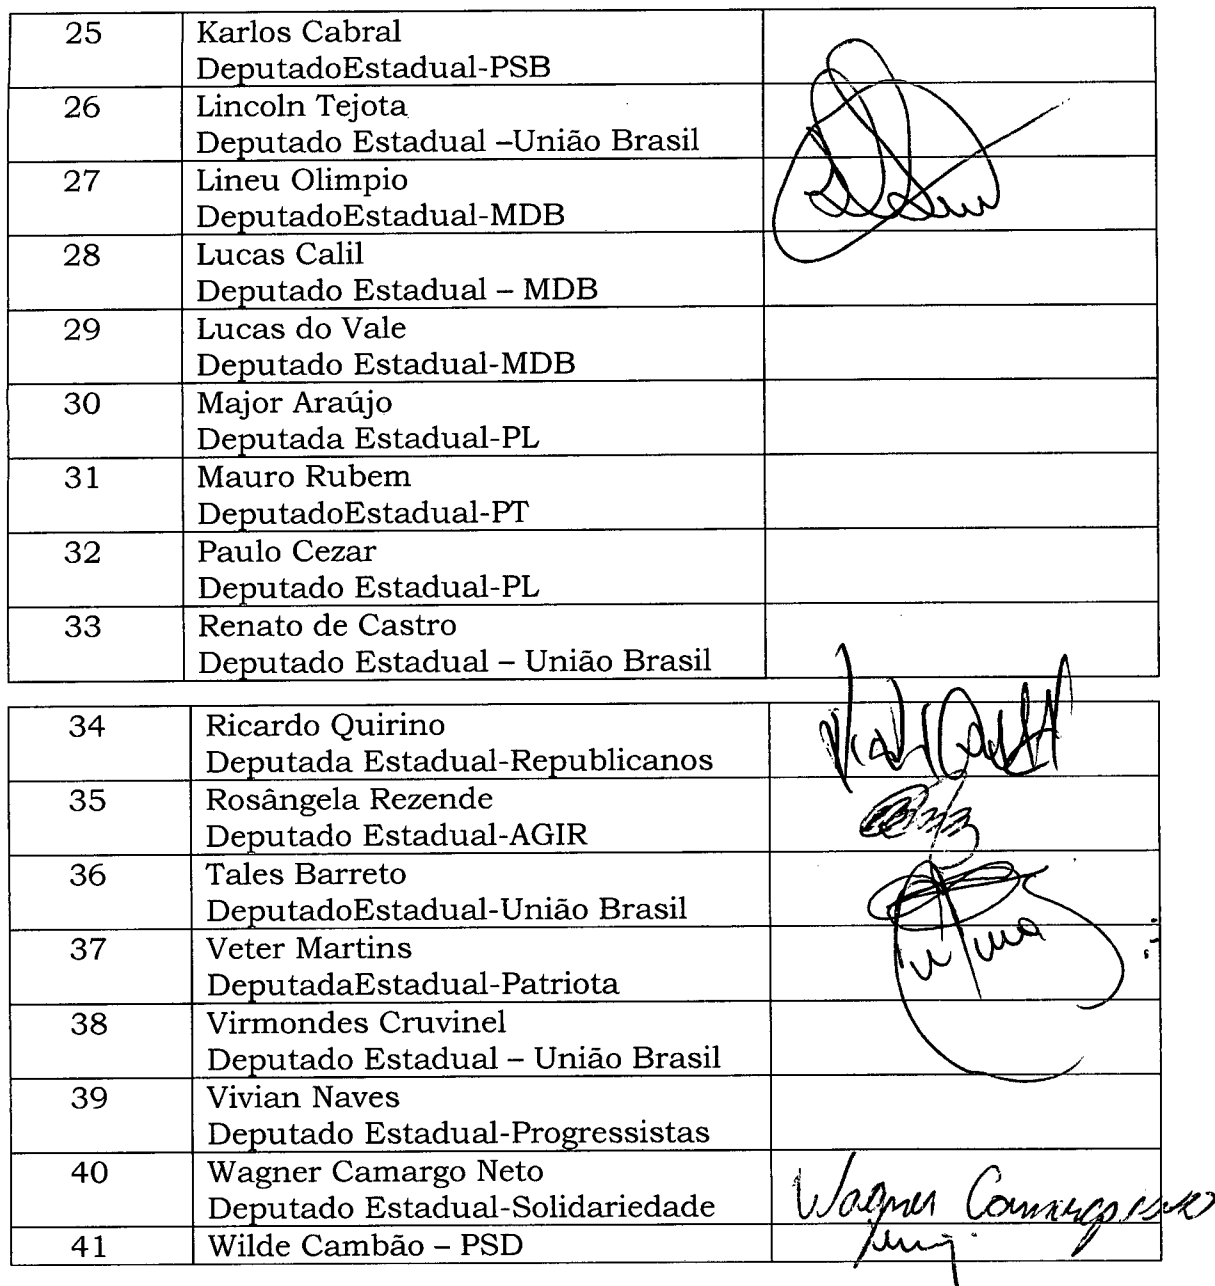 25 Karlos Cabral
DeputadoEstadual-PSB
26 Lincoln Tejota
Deputado Estadual –União Brasil
27 Lineu Olimpio
DeputadoEstadual-MDB
28 Lucas Calil
Deputado Estadual – MDB
29 Lucas do Vale
Deputado Estadual-MDB
30 Major Araújo
Deputada Estadual-PL
31 Mauro Rubem
DeputadoEstadual-PT
32 Paulo Cezar
Deputado Estadual-PL
33 Renato de Castro
Deputado Estadual – União Brasil
34 Ricardo Quirino
Deputada Estadual-Republicanos
35 Rosângela Rezende
Deputado Estadual-AGIR
36 Tales Barreto
DeputadoEstadual-União Brasil
37 Veter Martins
DeputadaEstadual-Patriota
38 Virmondes Cruvinel
Deputado Estadual – União Brasil
39 Vivian Naves
Deputado Estadual-Progressistas
40 Wagner Camargo Neto
Deputado Estadual-Solidariedade
Wagner Camargo
41 Wilde Cambão – PSD